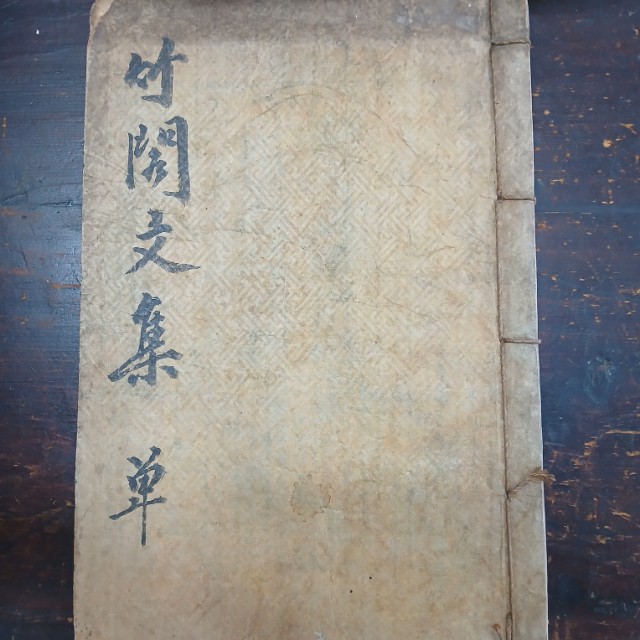 竹閣文集 単